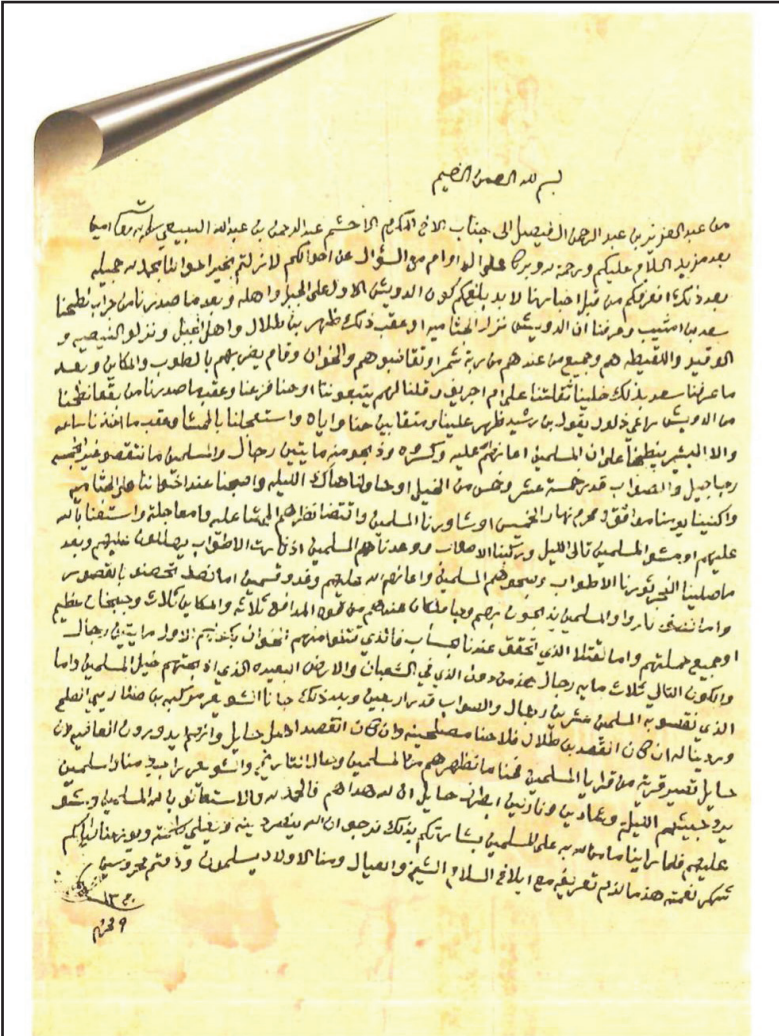 بسم الله الرحمن الرحيم
من عبد العزيز بن عبد الرحمن الفيصل الى جناب الاخ المكرم الاحشم عبد الرحمن بن عبد الله السبيعي سلمه الله تعالى امين
بعد مزيد السلام عليكم ورحمة الله وبركاته على الدوام مع السؤال عن احوالكم لا زلتم بخير احوالنا بحمد الله جميله
بعد ذلك انعرفكم من قبل اخبارنا لا بد بلغكم كون الدويش الاول على الجبل واهله وبعد ما صدرنا من جراب نطحنا
سعد بن امثيب وعرفنا ان الدويش نزل الجثاميه او عقب ذلك ظهر بن طلال واهل الجبل ونزلو النيصيه و
الوقيد واللقيطه هم وجميع من عندهم من بقيت شمر وتقاضبوهم والاخوان وقام يضربهم بالطوب والمكاين وبعد
ما عرفنا سعد بذلك خلينا ثقلتنا على ام اجريف وقلنا لهم يتبعوننا اوحنا فزعنا وعقب ما صدرنا من بقعا نطحنا
من الدويش راعي ذلول يقول بن رشيد ظهر علينا ومتقابلين حنا واياه واستعجلنا بالممشا وعقب ما اخذنا ساعه
والا البشير ينطحنا على ان المسلمين اعانهم الله عليه وكسروه وذبحو منه مايتين رجال والمسلمين ما نتقص غير خمسه
رجاجيل والصواب قدر خمسة عشر وخمس من الخيل او حاولنا هاك الليله واصبحنا عند اخواننا على الجثاميه
واكنينا يومنا موافق محرم نهار الخميس او شاورنا المسلمين واقتضا نظرهم الممشا عليه ومعاجلة واستعنا بالله
عليهم او مشو المسلمين تالي الليل وركبنا الاطواب ووعدناهم المسلمين اذا ثارت الاطواب يصطلون عليهم وبعد
ما صلينا الفجر ثورنا الاطواب وصبحوهم المسلمين واعانهم الله عليهم وغدو قسمين اما نصف تحصنو بالقصور
واما نصف باروا والمسلمين يذبحون بهم وجا ما كان عندهم من قوه المدافع ثلاثه والمكاين ثلاث وجبخان عظيم
اوجميع حملتهم واما القتلا الذي اتحقق عندنا بحساب فالذي قتلوا منهم الاخوان بكونهم الاول مايتين رجال
والكون التالي ثلاث مايه رجال هذا من دون الذي في الشعبان والارض البعيده الذي اذبحتهم خيل المسلمين واما
الذي نقص به المسلمين عشرين رجال والصواب قدر اربعين وبعد ذلك جانا الشويعر موكله بن طلال يبي الصلح
وردينا له ان كان القصد بن طلال فلا حنا مصلحينه وان كان القصد اهل حايل وانهم يدورون العافيه وان
حايل تصير قرية من قرايا المسلمين فحنا ما نظهرهم من المسلمين
عليهم فلما راينا ما من الله به على المسلمين بشارتكم بذلك نرجو ان الله ينصر دينه ويعلي كلمته ويوزعنا واياكم
شكر نعمته هذا ما لزم تعريفه مع ابلاغ السلام الشيخ والعيال ومنا الاولاد يسلمون ودمتم محروسين
٩ محرم